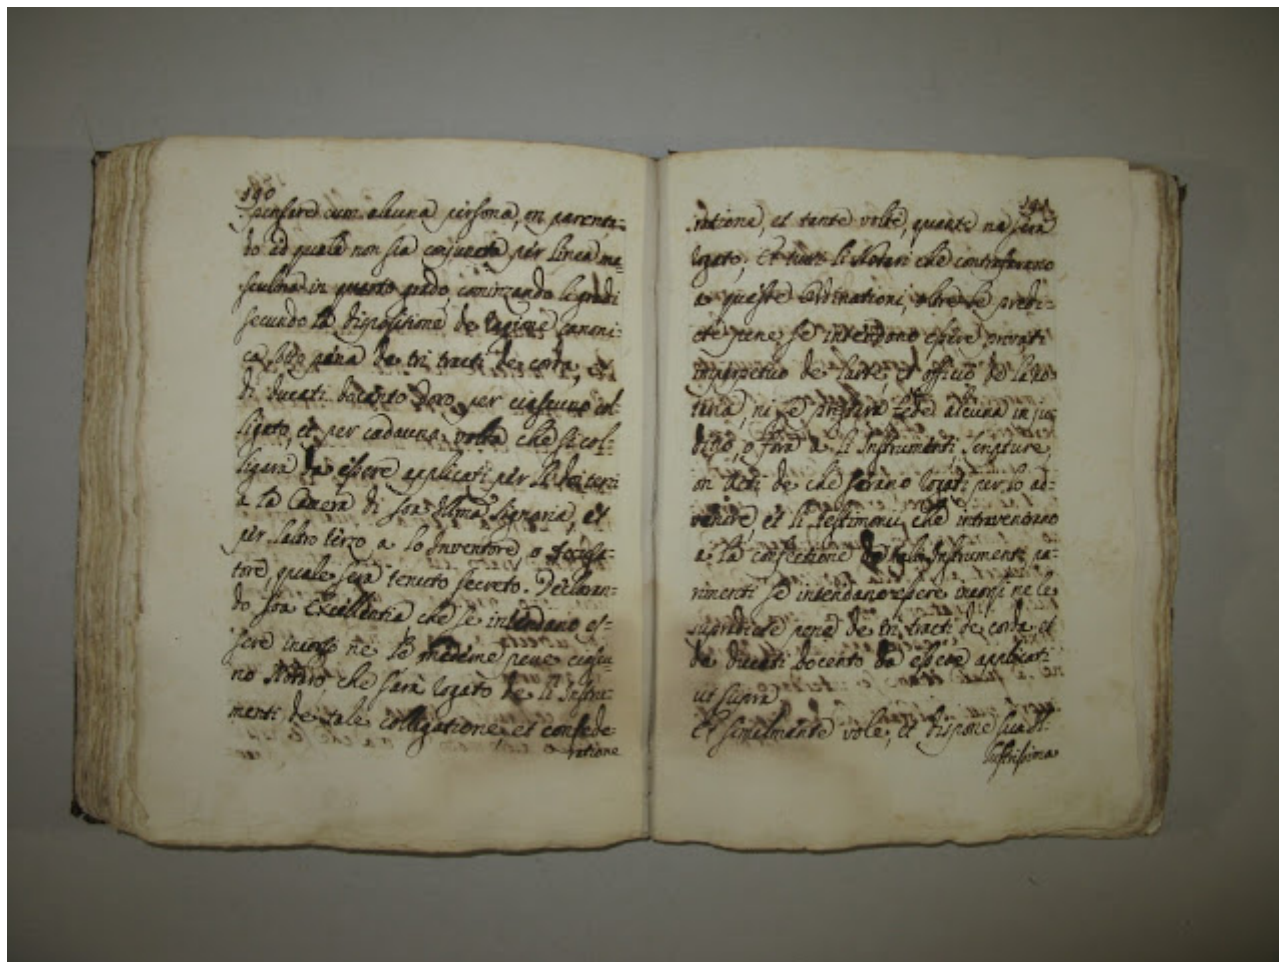 140
spensare cum alcuna persona, on parenta-
do ad quale non sia conjuncta per linea ma-
sculina in quarto grado, cominzando li gradi
secundo la dispositione de ragione canoni-
ca sotto pena de tri tracti de corda, et
di ducati docento doro per ciascuno col-
ligato, et per cadauna volta che si col-
ligara da essere applicati per li doi terzi
a la Camera di soa Illma Signoria, et
per laltro terzo a lo Inventore, o Accusa-
tore, quale sera tenuto secreto. Declaran-
do soa Excellentia che se intendano es-
sere incorso ne le medeme pene ciascu-
no Notaro, che sarà rogato de li Instru-
menti de tale colligatione, et confede-
ratione
141
ratione, et tante volte, quante ne sera
rogato, Et tutti li Notari che contrafarano
a queste Ordinationi, oltre le predi-
cte pene se intendono essere privati
imperpetuo de larte, et officio de la no-
taria, ni se prestera fede alcuna in ju-
ditio, o fora a li Instrumenti Scripture,
on Acti de che serano rogati per lo ad-
venire, et li testimonii che intraveneranno
a la confectione de tali Instrumenti pa-
rimenti se intendano essere incorsi ne le
supradicte pene de tri tracti de corda et
da ducati docento da essere applicati
ut supra
Et similmente vole, et dispone sua Il-
lustrissima